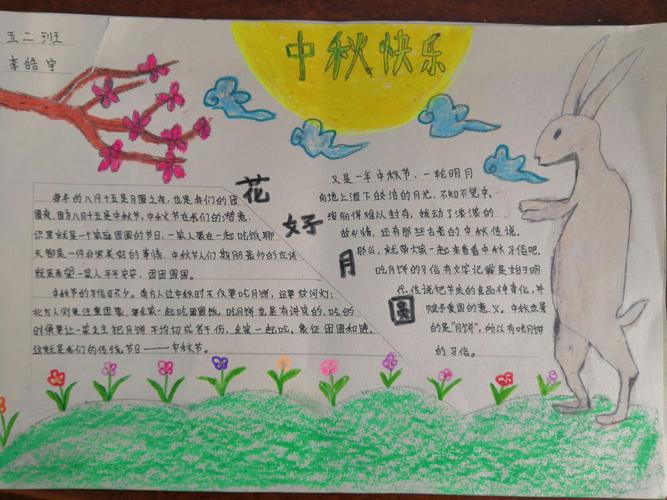 五二班
李皓宇
中秋快乐
花好月圆
每年的八月十五是月圆之夜，也是我们的团
圆夜。因为八月十五是中秋节，中秋节在我们的潜意
识里就是一个家庭团圆的节日，一家人聚在一起吃饭聊
天都是一件非常美好的事情，中秋节人们期盼最多的应该
就是希望一家人平平安安，团团圆圆。
中秋节的习俗可不少。南方人过中秋时不仅要吃月饼，还要放河灯；
北方人则更注重团聚，要全家一起吃团圆饭。吃月饼也是有讲究的，吃的
时候要让一家之主把月饼平均切成若干份，全家一起吃，象征团圆和睦。
这就是我们的传统节日——中秋节。
又是一年中秋节，一轮明月
向地上洒下皎洁的月光，不知不觉中，
难以封存，拨动了浓浓的
故乡情，还有那些古老的中秋传说。
那么，就带大家一起来看看中秋习俗吧。
吃月饼的习俗有文字记载是始于明
代，传说把节庆的食品神变化，并
赋予美圆的意义。中秋也尝
的是“月饼”，所以有吃月饼
的习俗。